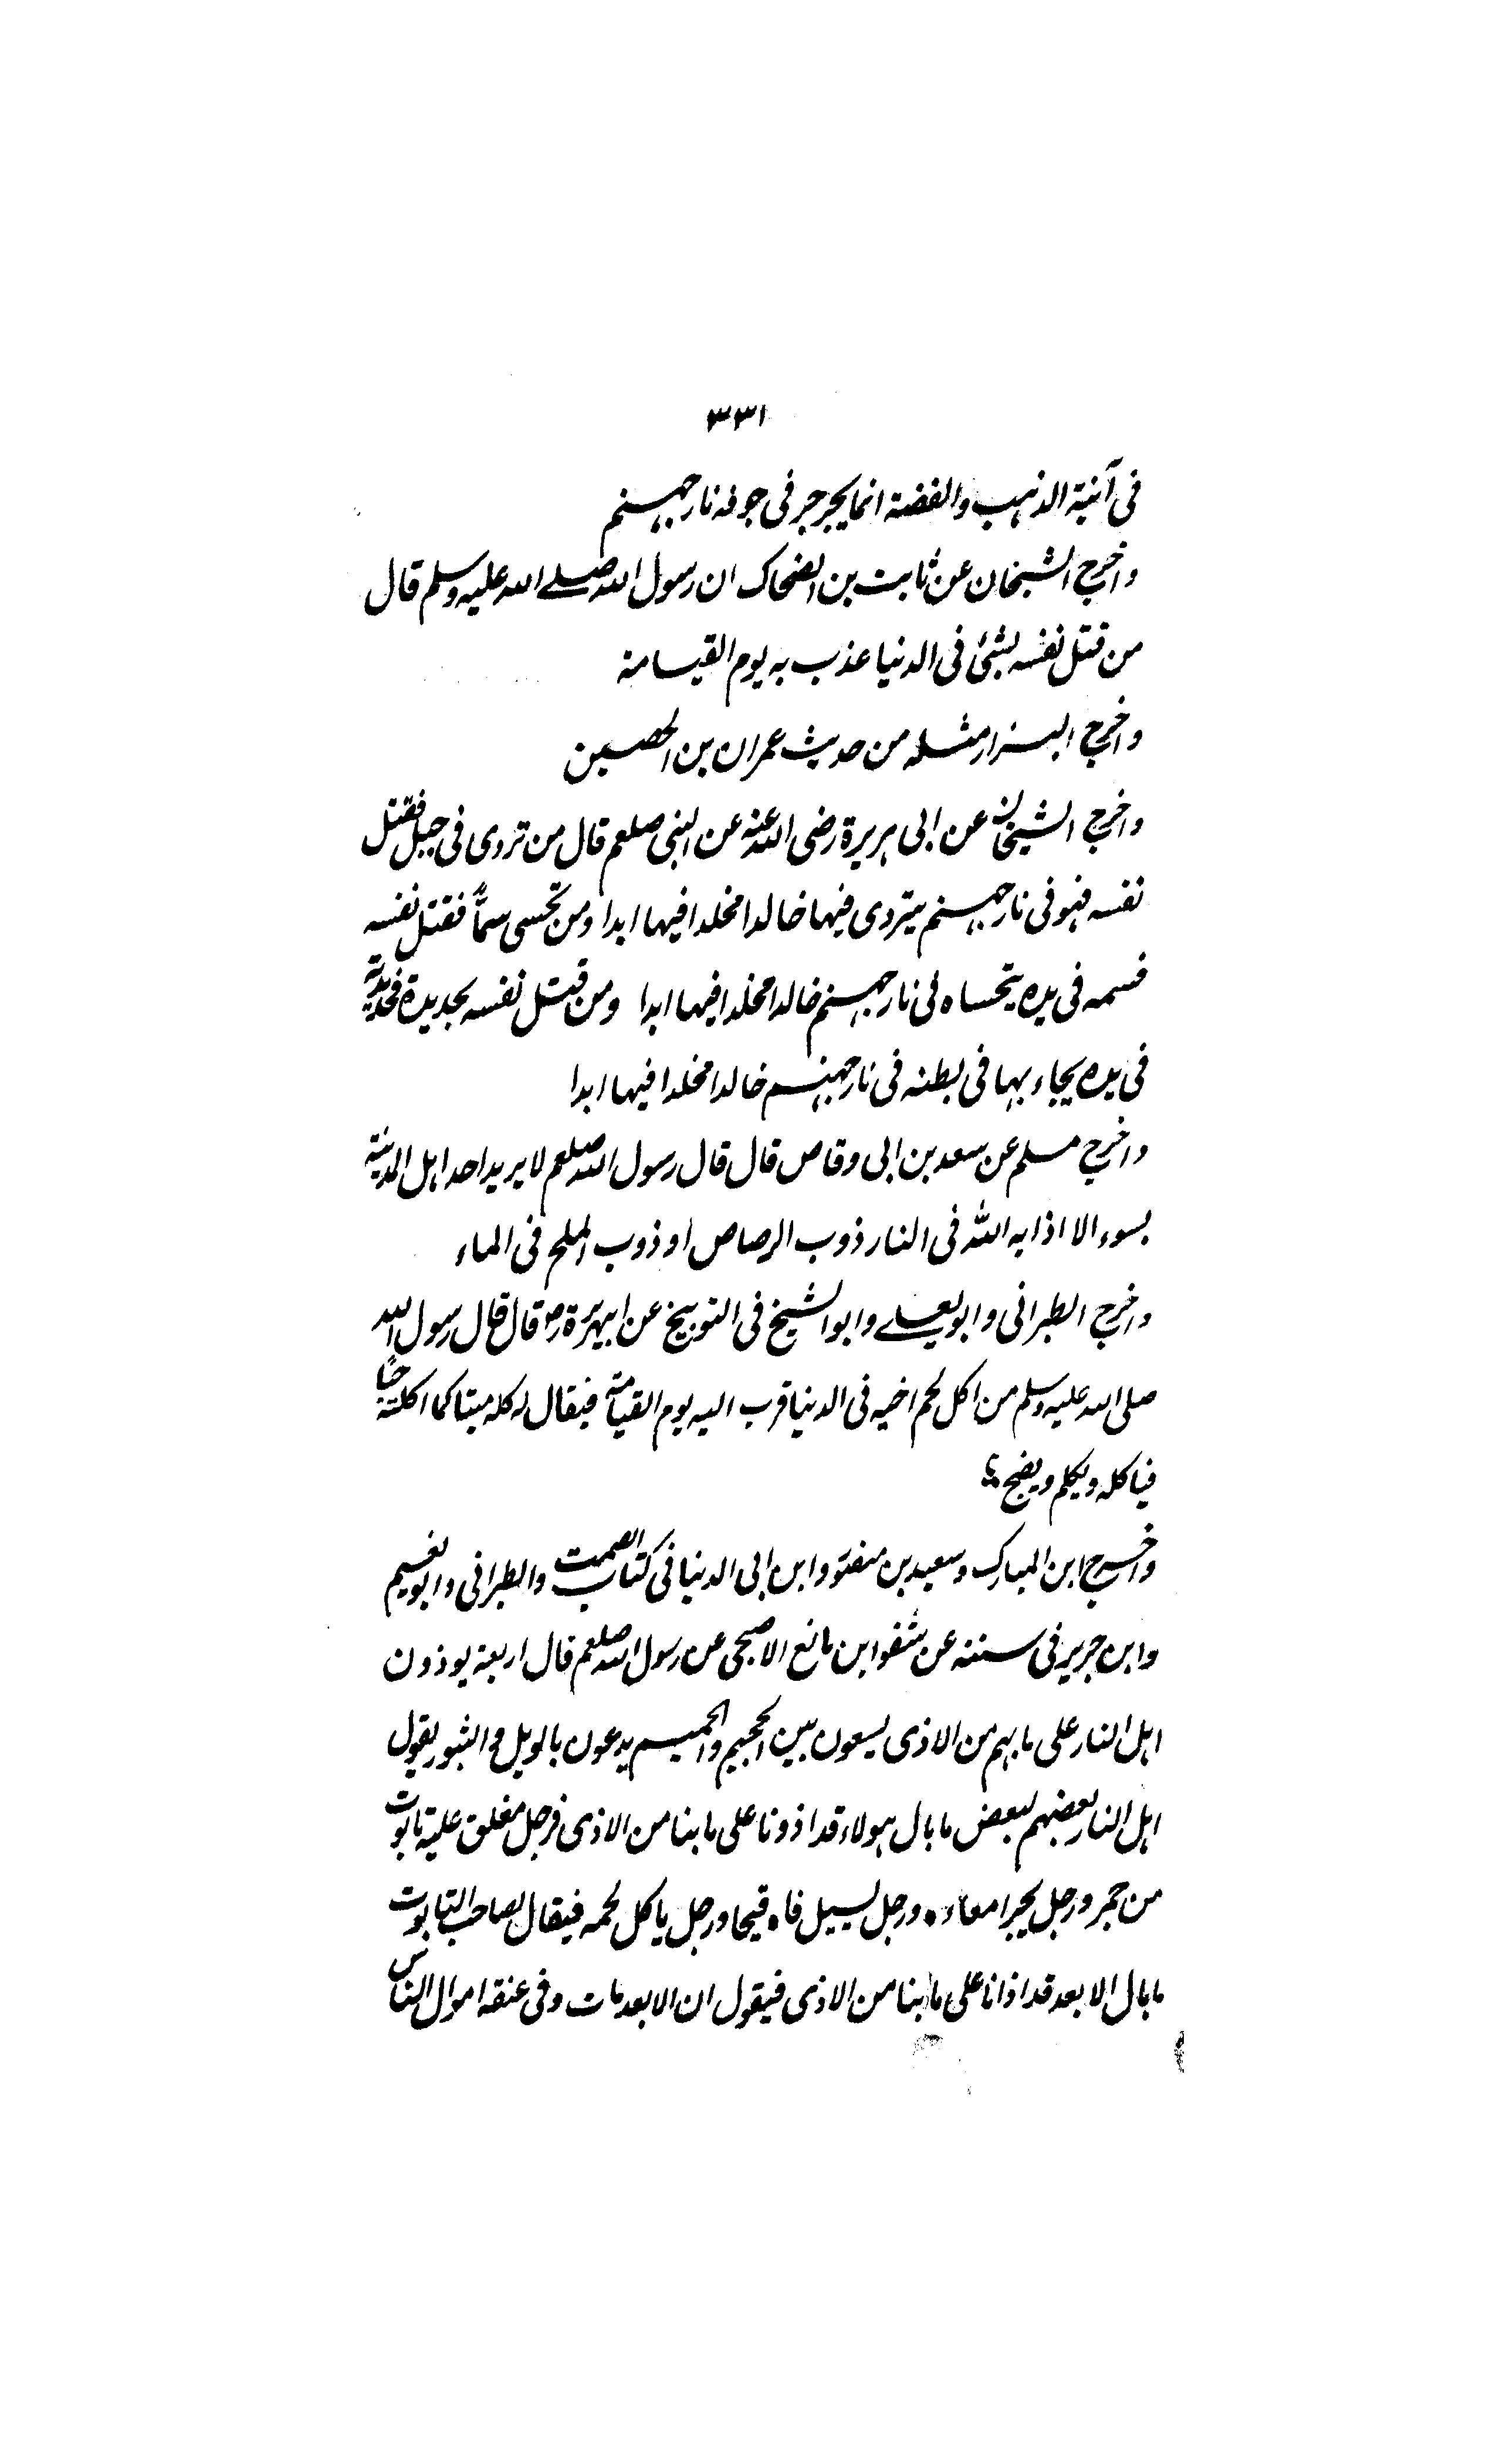 ۳۳۱
فی آنیۃ الذہب والفضۃ انما یجرجر فی جوفہ نار جہنم
واخرج الشیخان عن ثابت بن الضحاک ان رسول اللہ صلے اللہ علیہ وسلم قال
من قتل نفسہ بشئ فی الدنیا عذب بہ یوم القیامۃ
واخرج البزار مثلہ من حدیث عمران بن الحصین
واخرج الشیخان عن ابی ہریرۃ رضی اللہ عنہ عن النبی صلعم قال من تردی فی جبل فقتل
نفسہ فہو فی نار جہنم یتردی فیہا خالدا مخلدا فیہا ابدا ومن تحسی سمًّا فقتل نفسہ
فسمہ فی یدہ یتحساہ فی نار جہنم خالدا مخلدا فیہا ابدا ومن قتل نفسہ بحدیدۃ فحدیدتہ
فی یدہ یجاء بہا فی بطنہ فی نار جہنم خالدا مخلدا فیہا ابدا
واخرج مسلم عن سعد بن ابی وقاص قال قال رسول اللہ صلعم لا یرید احد اہل المدینۃ
بسوء الا اذابہ اللہ فی النار ذوب الرصاص او ذوب الملح فی الماء
واخرج الطبرانی وابو یعلے وابو الشیخ فی التوبیخ عن ابیہریرۃ رض قال قال رسول اللہ
صلی اللہ علیہ وسلم من اکل لحم اخیہ فی الدنیا قرب الیہ یوم القیامۃ فیقال لہ کلہ میتا کما اکلتہ حیًا
فیاکلہ ویکلح ویضج
واخرج ابن المبارک وسعید بن منصور وابن ابی الدنیا فی کتاب الصمت والطبرانی وابو نعیم
وابن جریر فی سننہ عن شفو ابن مانع الاصبحی عن رسول اللہ صلعم قال اربعۃ یوذون
اہل النار علی ما بہم من الاذی یسعون بین الجحیم والحمیم یدعون بالویل والثبور یقول
اہل النار بعضہم لبعض ما بال ہولاء قد اذونا علی ما بنا من الاذی فرجل مغلق علیہ تابوت
من جمر ورجل یجر امعاءہ ورجل یسیل فاہ قیحا ورجل یاکل لحمہ فیقال لصاحب التابوت
ما بال الابعد قد اذانا علی ما بنا من الاذی فیقول ان الابعد مات وفی عنقہ اموال الناس